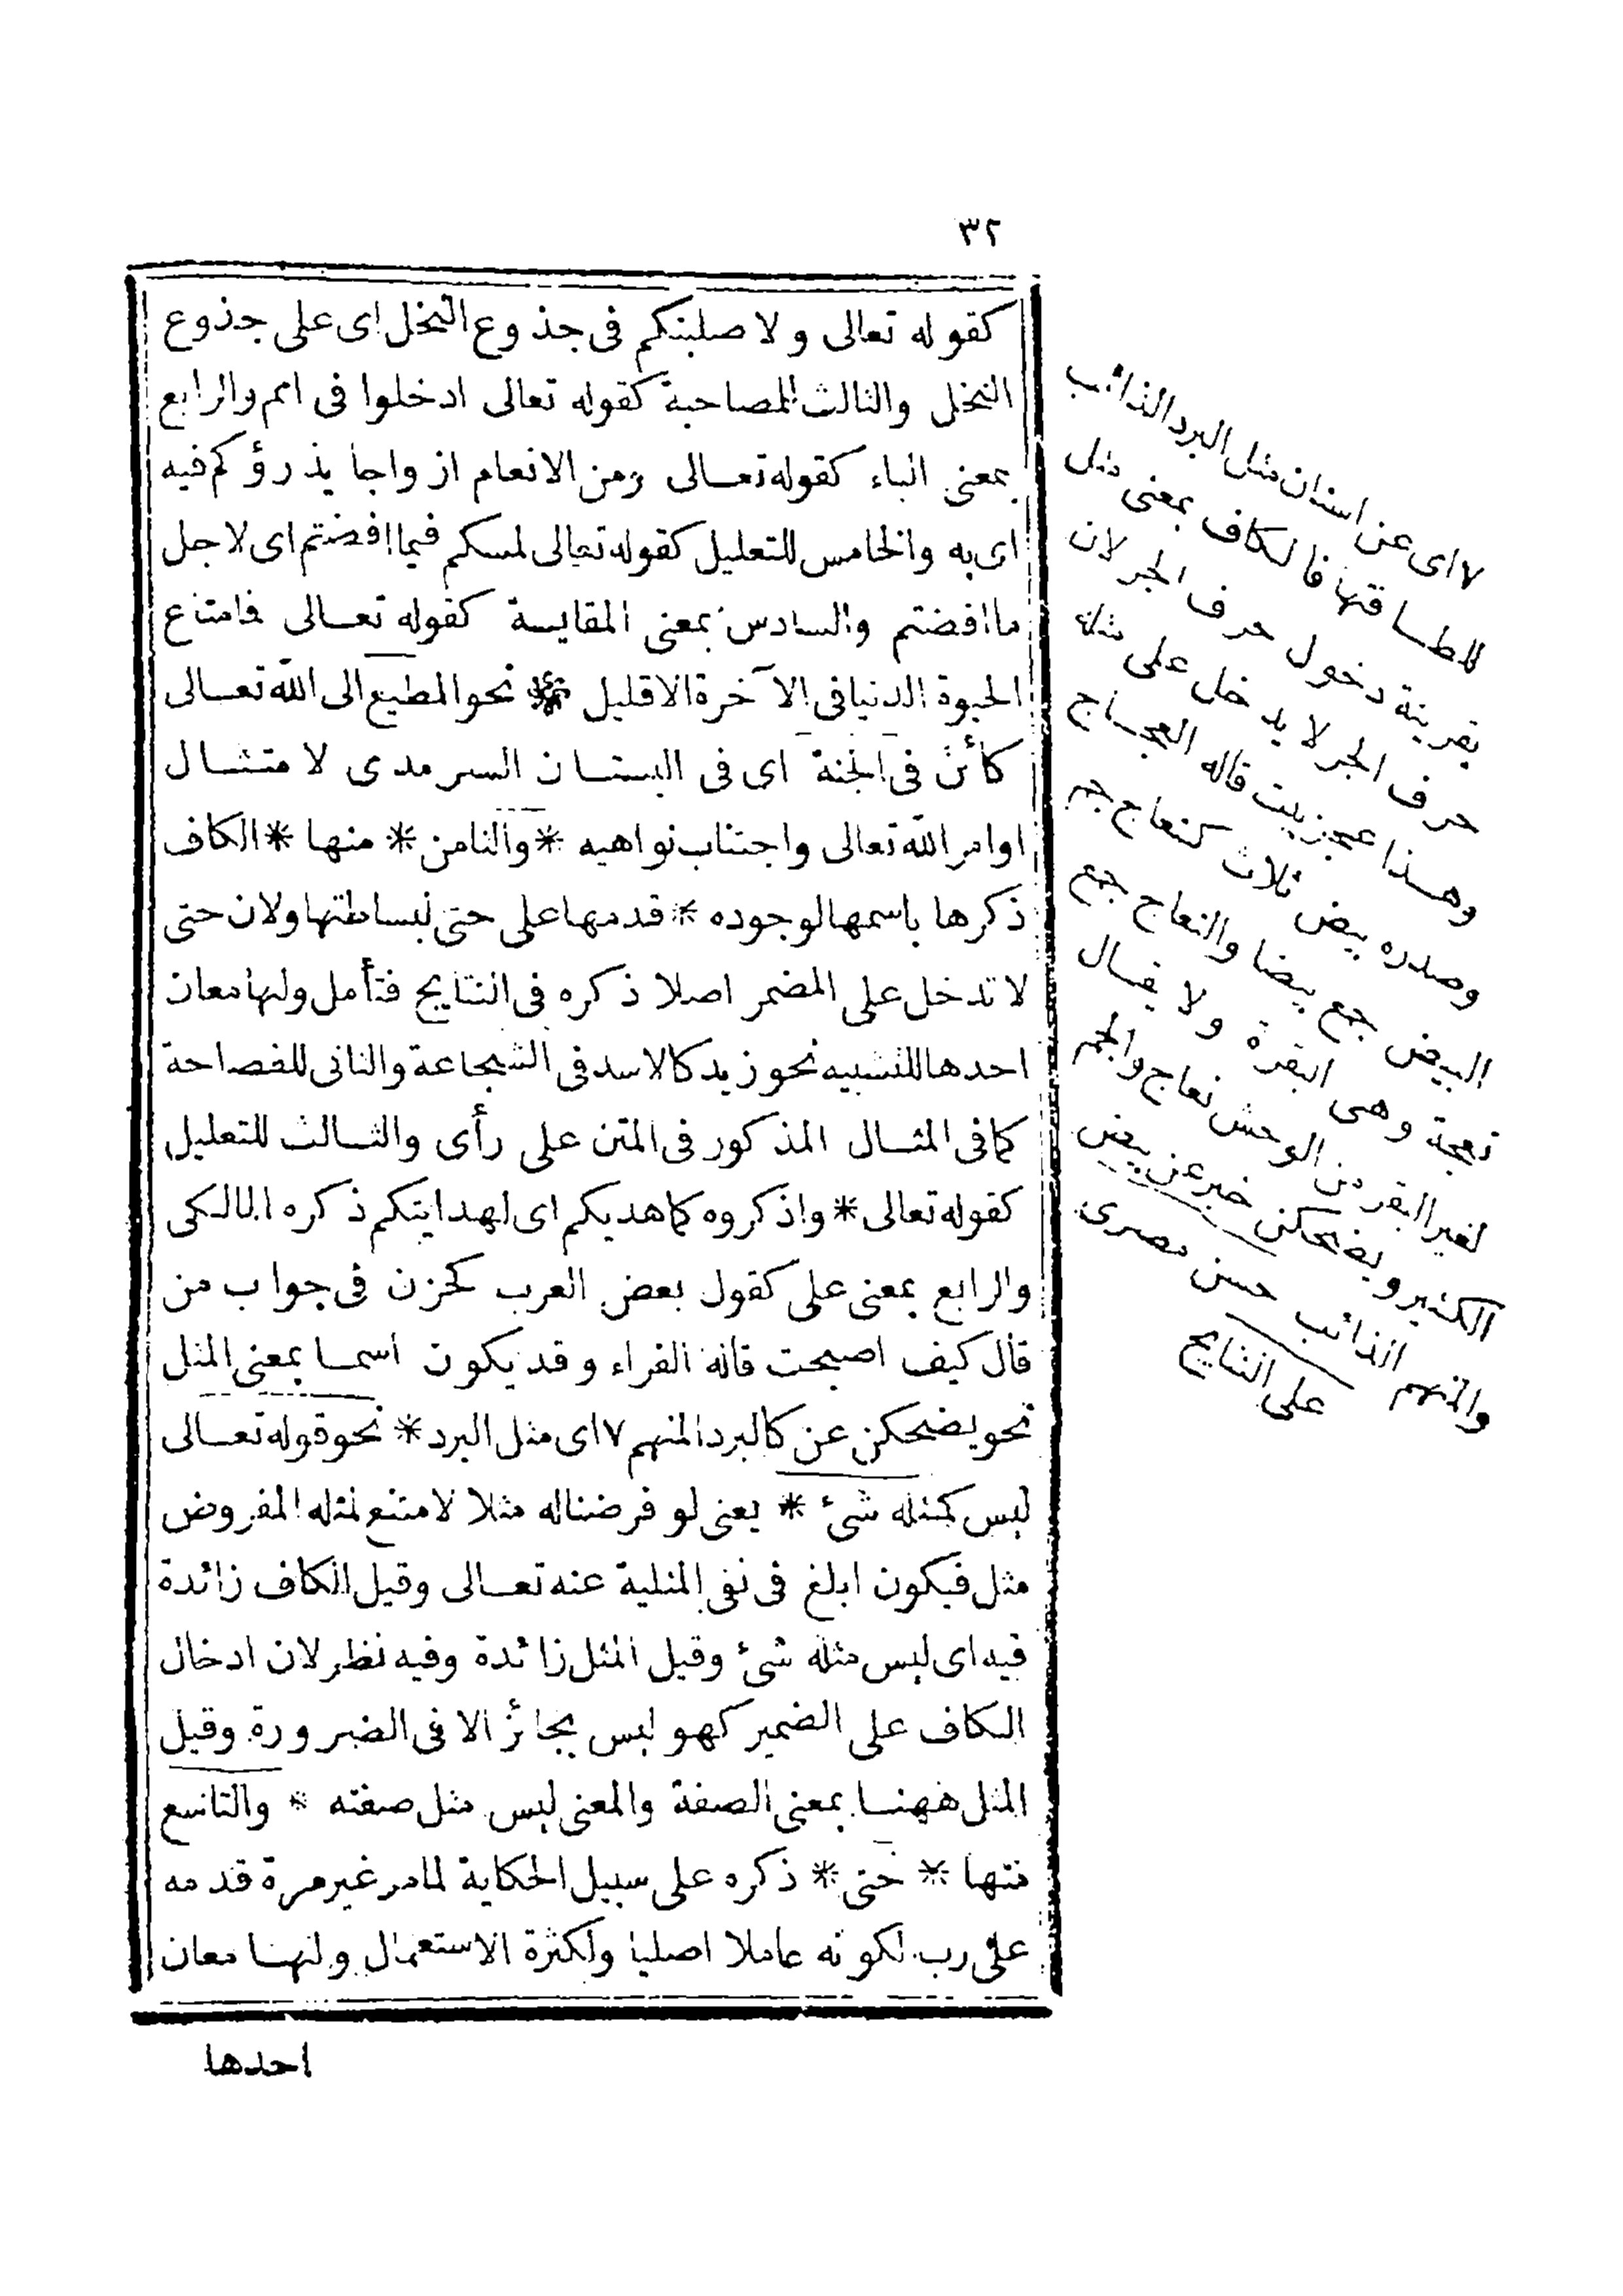 ٣٢
كقوله تعالى ولاصلبنكم فى جذوع النخل اى على جذوع
النخل والثالث المصاحبة كقوله تعالى ادخلوا فى امم والرابع
بمعنى الباء كقوله تعالى ومن الانعام ازواجا يذرؤكم فيه
اى به والخامس للتعليل كقوله تعالى لمسكم فيما افضتم اى لاجل
ما افضتم والسادس بمعنى المقايسة كقوله تعالى فامتاع
الحيوة الدنيا فى الآخرة الا قليل * نحو المطيع الى الله تعالى
كائن فى الجنة اى فى البستان السرمدى لامتثال
اوامر الله تعالى واجتناب نواهيه * والثامن * منها * الكاف
ذكرها باسمها لوجوده * قدمها على حتى لبساطتها ولان حتى
لا تدخل على المضمر اصلا ذكره فى النتايج فتأمل ولها معان
احدها للتشبيه نحو زيد كالاسد فى الشجاعة والثانى للفصاحة
كما فى المثال المذكور فى المتن على رأى والثالث للتعليل
كقوله تعالى * واذكروه كما هديكم اى لهدايتكم ذكره المالكى
والرابع بمعنى على كقول بعض العرب كخزن فى جواب من
قال كيف اصبحت قاله الفراء وقد يكون اسما بمعنى المثل
نحو يضحكن عن كالبرد المنهم ٧ اى مثل البرد * نحو قوله تعالى
ليس كمثله شئ * يعنى لو فرضنا له مثلا لامتنع لمثله المفروض
مثل فيكون ابلغ فى نفى المثلية عنه تعالى وقيل الكاف زائدة
فيه اى ليس مثله شئ وقيل المثل زائدة وفيه نظر لان ادخال
الكاف على الضمير كهو ليس بجائز الا فى الضرورة وقيل
المثل ههنا بمعنى الصفة والمعنى ليس مثل صفته * والتاسع
منها * حتى * ذكره على سبيل الحكاية لما مر غير مرة قدمه
على رب لكونه عاملا اصليا ولكثرة الاستعمال ولها معان
احدها
٧ اى عن اسنان مثل البرد الذائب
للطافتها فالكاف بمعنى مثل
بقرينة دخول حرف الجر لان
حرف الجر لا يدخل على مثله
وهذا عجز بيت قاله العجاج
وصدره بيض ثلاث كنعاج جم
البيض جمع بيضا والنعاج جمع
نعجة وهى البقرة ولا يقال
لغير البقر من الوحش نعاج والجم
الكثير ويضحكن خبر عن بيض
والمنهم الذائب حسن مصرى
على النتايج